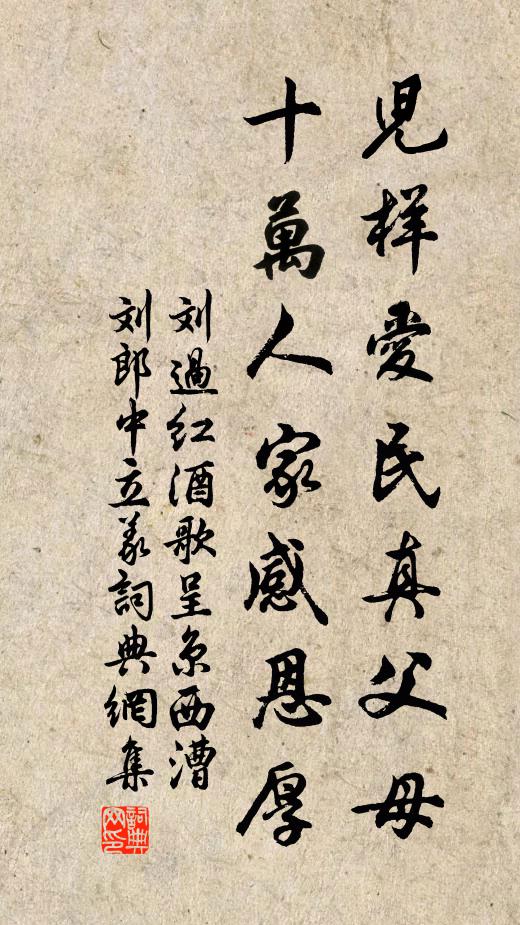 児样愛民真父母
十萬人家感恩厚
刘過红酒歌呈京西漕
刘郎中立義詞典網集
詞典网印